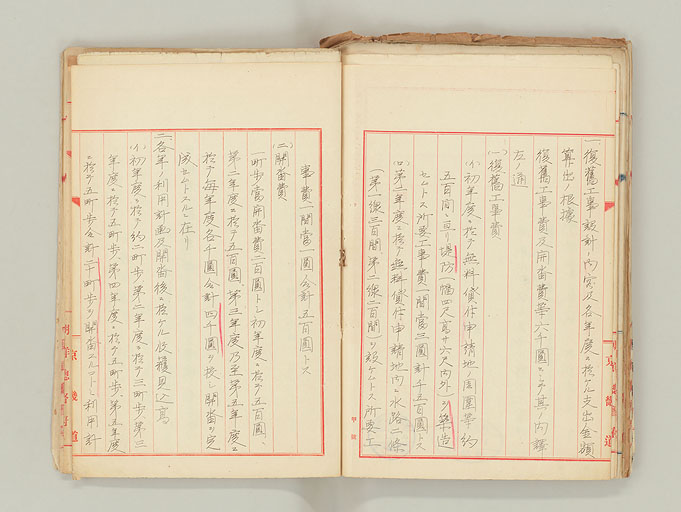 一、復舊工事設計ノ内容及各年度ニ於ケル支出金額
算出ノ根據
復舊工事費及開畓費等六千圓ニシテ其ノ内譯
左ノ通
(一)復舊工事費
(イ)初年度ニ於テ無料貸付申請地ノ周圍等約
五百間ニ亘リ堤防(幅四尺高サ六尺内外)ヲ築造
セムトス所要工事費一間當三圓計千五百圓トス
(ロ)第二年度ニ於テ無料貸付申請地内ニ水路二條
(第一線三百間、第二線二百間)ヲ設ケムトス所要工
事費一間當一圓合計五百圓トス
(二)開畓費
一町歩當開畓費二百圓トシ初年度ニ於テ五百圓、
第二年度ニ於テ五百圓、第三年度乃至第五年度ニ
於テ毎年度各千圓合計四千圓ヲ投シ開畓ヲ完
成セムトスルニ在リ
二、各年ノ利用計画及開畓後ニ於ケル收穫見込高
(イ)初年度ニ於テ約二町歩、第二年度ニ於テ三町歩、第三
年度ニ於テ五町歩、第四年度ニ於テ五町歩、第五年度
ニ於テ五町歩合計二十町歩ヲ開畓スルコトトシ利用計